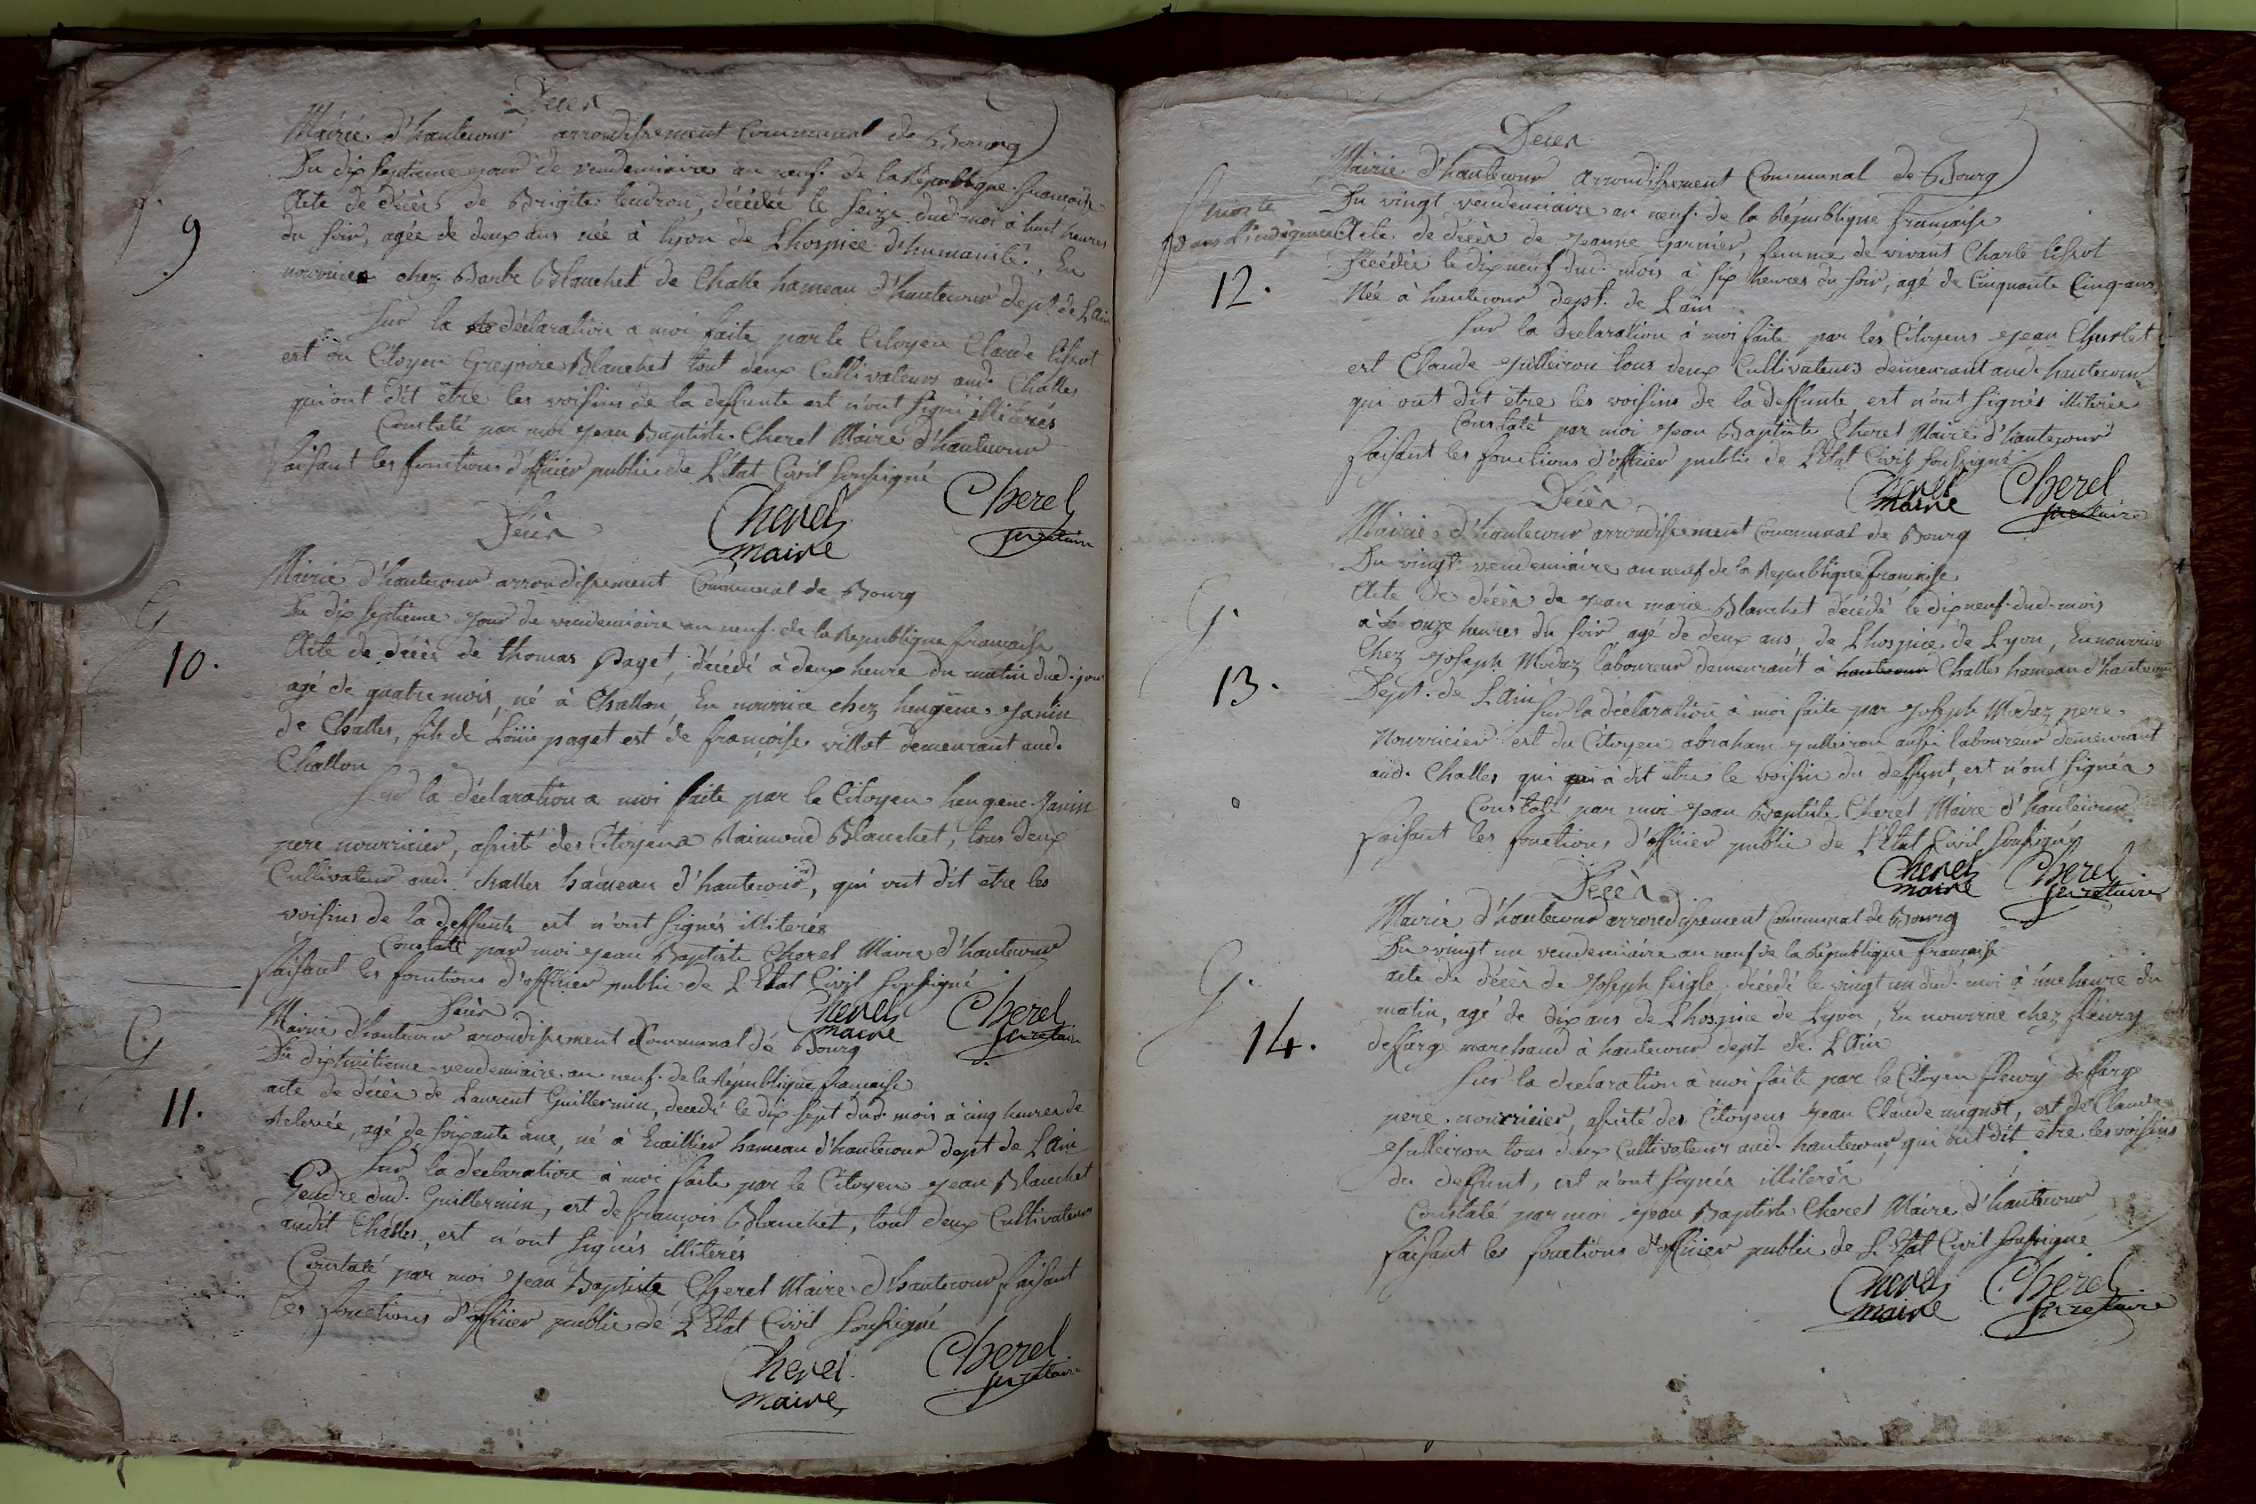 Décès
Mairie d'hautecour arrondissement Communal de Bourg
Du dix septieme jour de vendemiaire an neuf de la République française
Acte de décès de Brigite decedée le seize dud. moi à huit heures
9
du soir, agée de deux ans née à lyon de Lhospice d'humanité, En
nourrice chez Barbe Blanchet de Challe hameau d'hautecour dept. de Lain
Sur la déclaration a moi faite par le Citoyen Claude
est du Citoyen Gregoire Blanchet tout deux Cultivateurs aud. Challes
qui ont dit être les voisins de la deffunte est n'ont signés illiterés
Constaté par moi Jean Baptiste Cherel Maire d'hautecour
faisant les fonctions d'officier public de L'Etat Civil soussigné
Cherel Cherel
maire secretaire
Décès
Mairie d'hautecour arrondissement Communal de Bourg
Du dix septieme jour de vendemiaire an neuf de la République française
10.
Acte de décès de thomas Paget, décédé à deux heure du matin dud. jour
agé de quatre mois, né à Challon, En nourrice chez heugene Janin
de Challes, fils de Louis paget est de françoise villot demeurant aud.
Challon
Sur la déclaration a moi faite par le Citoyen heugene Janin
pere nourricier, assisté des Citoyens Raimond Blanchet, tous deux
Cultivateur aud. challes hameau d'hautecour, qui ont dit être les
voisins de la deffunte est n'ont signés illiterés
Constaté par moi Jean Baptiste Cherel Maire d'hautecour
faisant les fonctions d'officier public de L'Etat Civil soussigné
Cherel Cherel
maire secretaire
Décès
Mairie d'hautecour arrondissement Communal de Bourg
Du dix huitieme vendemiaire an neuf de la République française
11.
acte de décès de Laurent Guillermin, decedé le dix sept dud. mois à cinq heures de
Relevée, agé de soixante ans, né à hameau d'hautecour dept de Lain
Sur la déclaration à moi faite par le Citoyen Jean Blanchet
Gendre dud. Guillermin, est de françois Blanchet, tout deux Cultivateurs
audit Challes, est n'ont signés illiterés
Constaté par moi Jean Baptiste Cherel Maire d'hautecour faisant
les fonctions d'officier public de L'Etat Civil soussigné
Cherel Cherel
maire secretaire
Décès
Mairie d'hautecour arrondissement Communal de Bourg
Du vingt vendemiaire an neuf de la République française
dans l'indigence
Acte de décès de Jeanne Garnier, femme de vivant Charle
12.
Décédée le dix neuf dud. mois à six heures du soir, agé de Cinquante Cinq ans
Née à hautecour dept. de Lain
Sur la declaration à moi faite par les Citoyens Jean
est Claude Jullieron tous deux Cultivateurs demeurant aud. hautecour
qui ont dit être les voisins de la deffunte est n'ont signés illiterés
Constaté par moi Jean Baptiste Cherel Maire d'hautecour
faisant les fonctions d'officier public de L'Etat Civil soussigné
Cherel Cherel
maire secretaire
Décès
Mairie d'hautecour arrondissement Communal de Bourg
Du vingt vendemiaire an neuf de la République française
Acte de décès de Jean marie Blanchet décédé le dix neuf dud. mois
à onze heures du soir agé de deux ans, de Lhospice de Lyon, En nourrice
13.
Chez Joseph Modaz laboureur demeurant à hautecour Challes hameau d'hautecour
Dept. de Lain
Sur la déclaration à moi faite par Joseph Modaz pere
Nourricier est du Citoyen abraham Jullieron aussi laboureur demeurant
aud. Challes qui a dit être le voisin du deffunt, est n'ont signés
Constaté par moi Jean Baptiste Cherel Maire d'hautecour
faisant les fonctions d'officier public de L'Etat Civil soussigné
Cherel Cherel
maire secretaire
Décès
Mairie d'hautecour arrondissement Communal de Bourg
Du vingt un vendemiaire an neuf de la République française
acte de décès de Joseph feigle décédé le vingt un dud. moi à une heure du
14.
matin, agé de dix ans de Lhospice de Lyon, En nourrice chez fleury
deffarge marchand à hautecour dept de Lain
Sur la declaration à moi faite par le Citoyen fleury deffarge
pere nourricier, assisté des Citoyens Jean Claude mignot, est de Claude
Jullieron tous deux Cultivateurs aud. hautecour, qui ont dit être les voisins
du deffunt, est n'ont signés illiterés
Constaté par moi Jean Baptiste Cherel Maire d'hautecour
faisant les fonctions d'officier public de L'Etat Civil soussigné
Cherel Cherel
maire secretaire